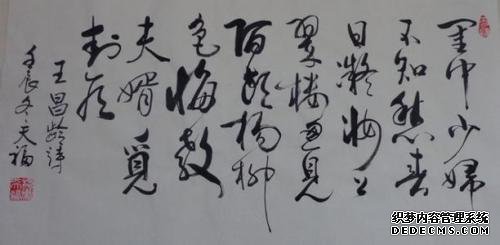 閨中少婦
不知愁春
日凝妝上
翠樓忽見
陌頭楊柳
色悔教
夫婿覓
封侯
王昌齡詩
壬辰冬天福
织梦内容管理系统
DEDECMS.COM